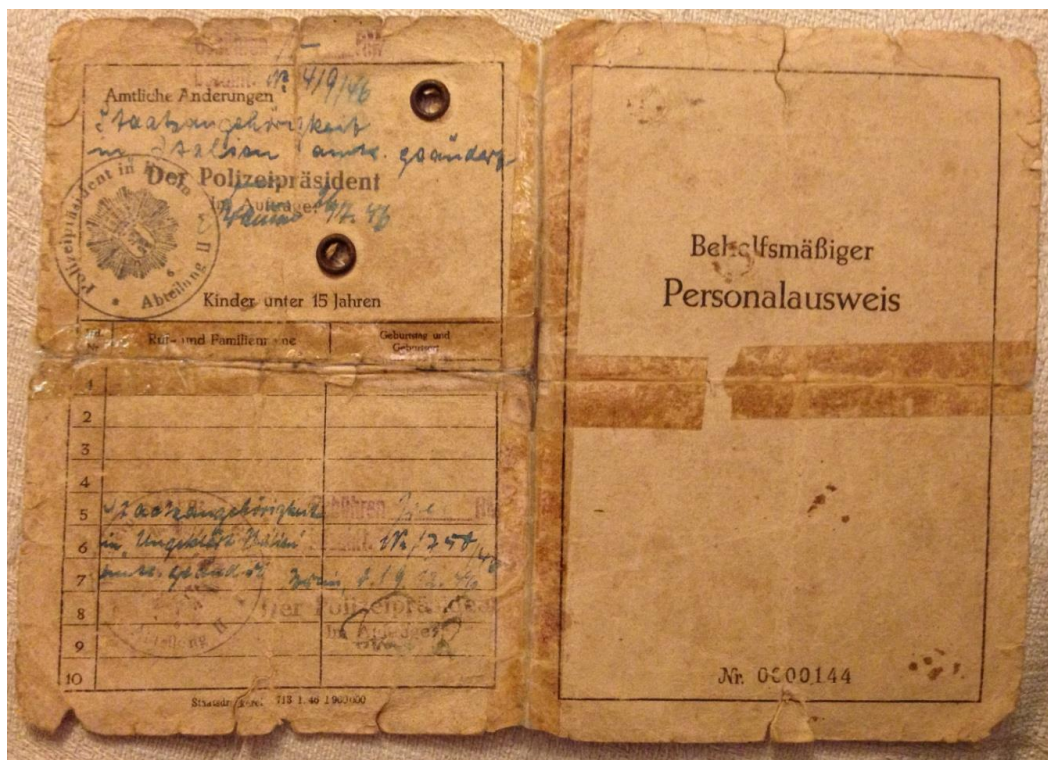 Gebühren
№ 4/9/46
Amtliche Änderungen
Staatsangehörigkeit
in Italien amtl. geändert
Der Polizeipräsident
Im Auftrage
Polizeipräsident in Berlin
Abteilung II
Kinder unter 15 Jahren
Ruf- und Familienname
Geburtstag und Geburtsort
1
2
3
4
5
6
7
8
9
10
Staatsangehörigkeit
Gebühren
in "Ungeklärt Italien"
amtl. geändert
Der Polizeipräsident
Im Auftrage
Abteilung II
713 1. 46 1 900 000
Behelfsmäßiger
Personalausweis
Nr. 0000144